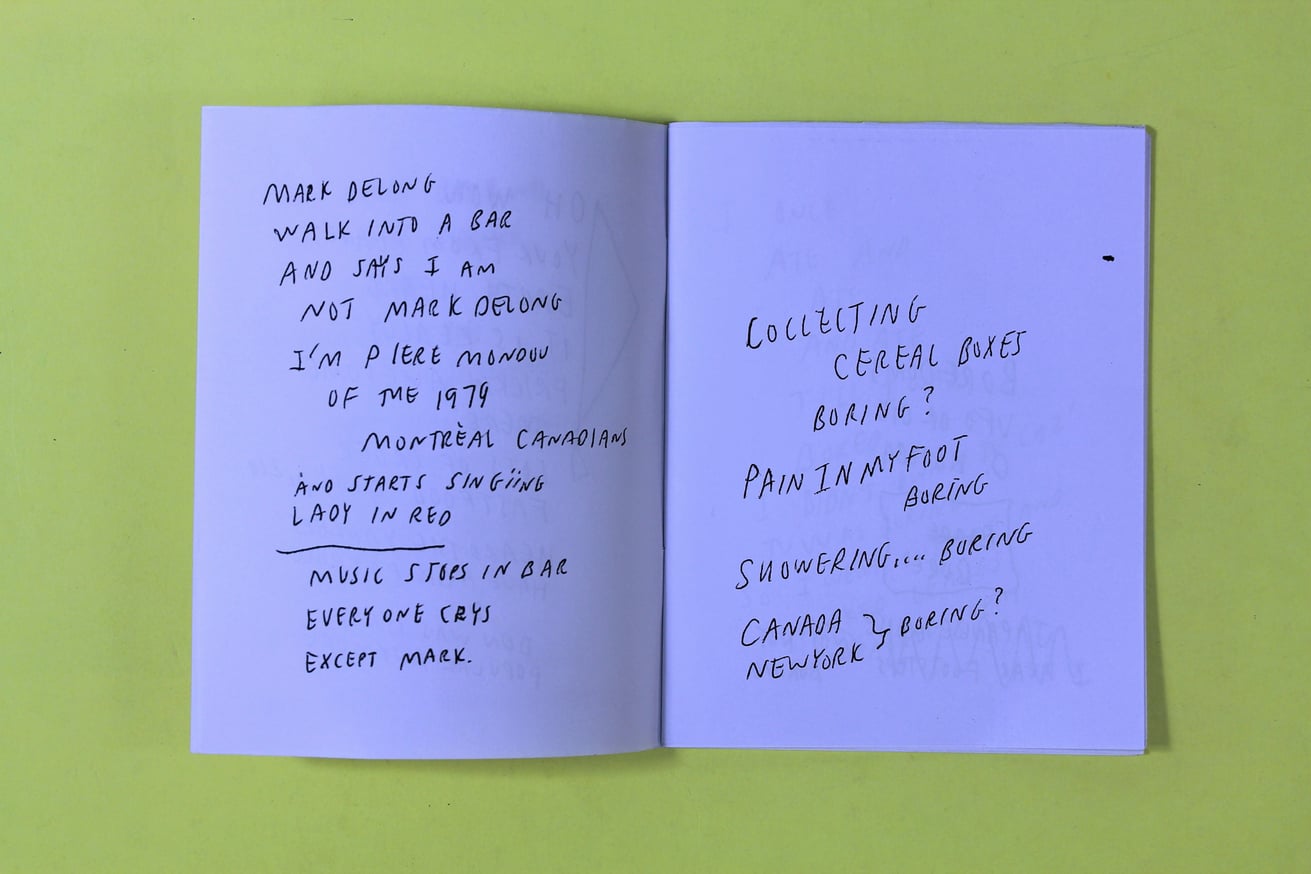 MARK DELONG
WALK INTO A BAR
AND SAYS I AM
NOT MARK DELONG
I'M PIERE MONDOU
OF THE 1979
MONTRÈAL CANADIANS
AND STARTS SINGIING
LADY IN RED
MUSIC STOPS IN BAR
EVERYONE CRYS
EXCEPT MARK.
COLLECTING
CEREAL BOXES
BORING?
PAIN IN MY FOOT
BORING
SHOWERING.... BORING
CANADA } BORING?
NEWYORK